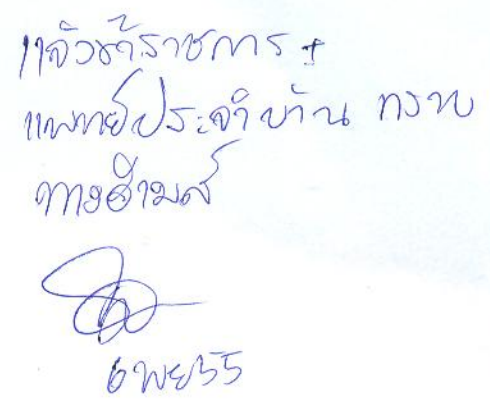 แจ้งข้าราชการ +
แพทย์ประจำบ้าน ทราบ
ทางอีเมล์
6 พย 55